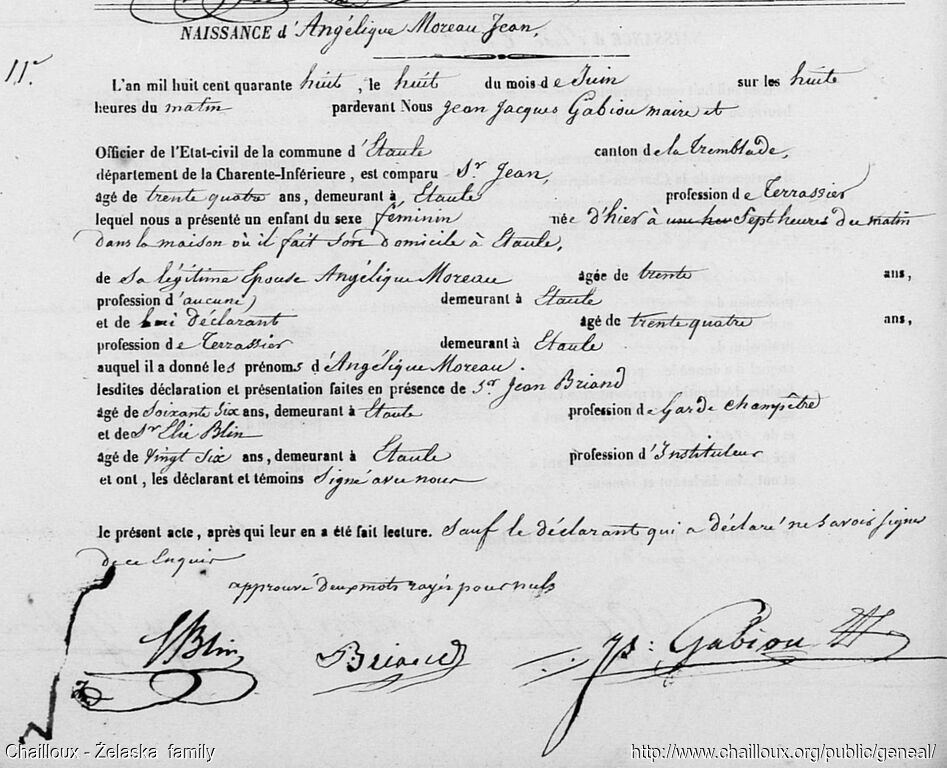 NAISSANCE d'Angélique Moreau Jean,
11e.
L'an mil huit cent quarante huit, le huit du mois de Juin sur les huite
heures du matin pardevant Nous Jean Jacques Gabiou maire et
Officier de l'Etat-civil de la commune d'Etaule canton de la Tremblade,
département de la Charente-Inférieure, est comparu Sr. Jean,
âgé de trente quatre ans, demeurant à Etaule profession de Terrassier
lequel nous a présenté un enfant du sexe féminin née d'hier à Sept heures du matin
dans la maison où il fait son domicile à Etaule,
de Sa légitime Epouse Angélique Moreau âgée de trente ans,
profession d'aucune, demeurant à Etaule
et de lui déclarant âgé de trente quatre ans,
profession de Terrassier demeurant à Etaule
auquel il a donné les prénoms d'Angélique Moreau.
lesdites déclaration et présentation faites en présence de Sr. Jean Briand
âgé de Soixante Six ans, demeurant à Etaule profession de Garde champêtre
et de Sr Elie Blin
âgé de Vingt Six ans, demeurant à Etaule profession d'Instituteur
et ont, les déclarant et témoins Signé avec nous
le présent acte, après qui leur en a été fait lecture. Sauf le déclarant qui a déclaré ne savoir signer
de ce Enquis
approuvé deux mots rayés pour nuls
Blin
Briand
Gabiou
Chailloux - Želaska family
http://www.chailloux.org/public/geneal/